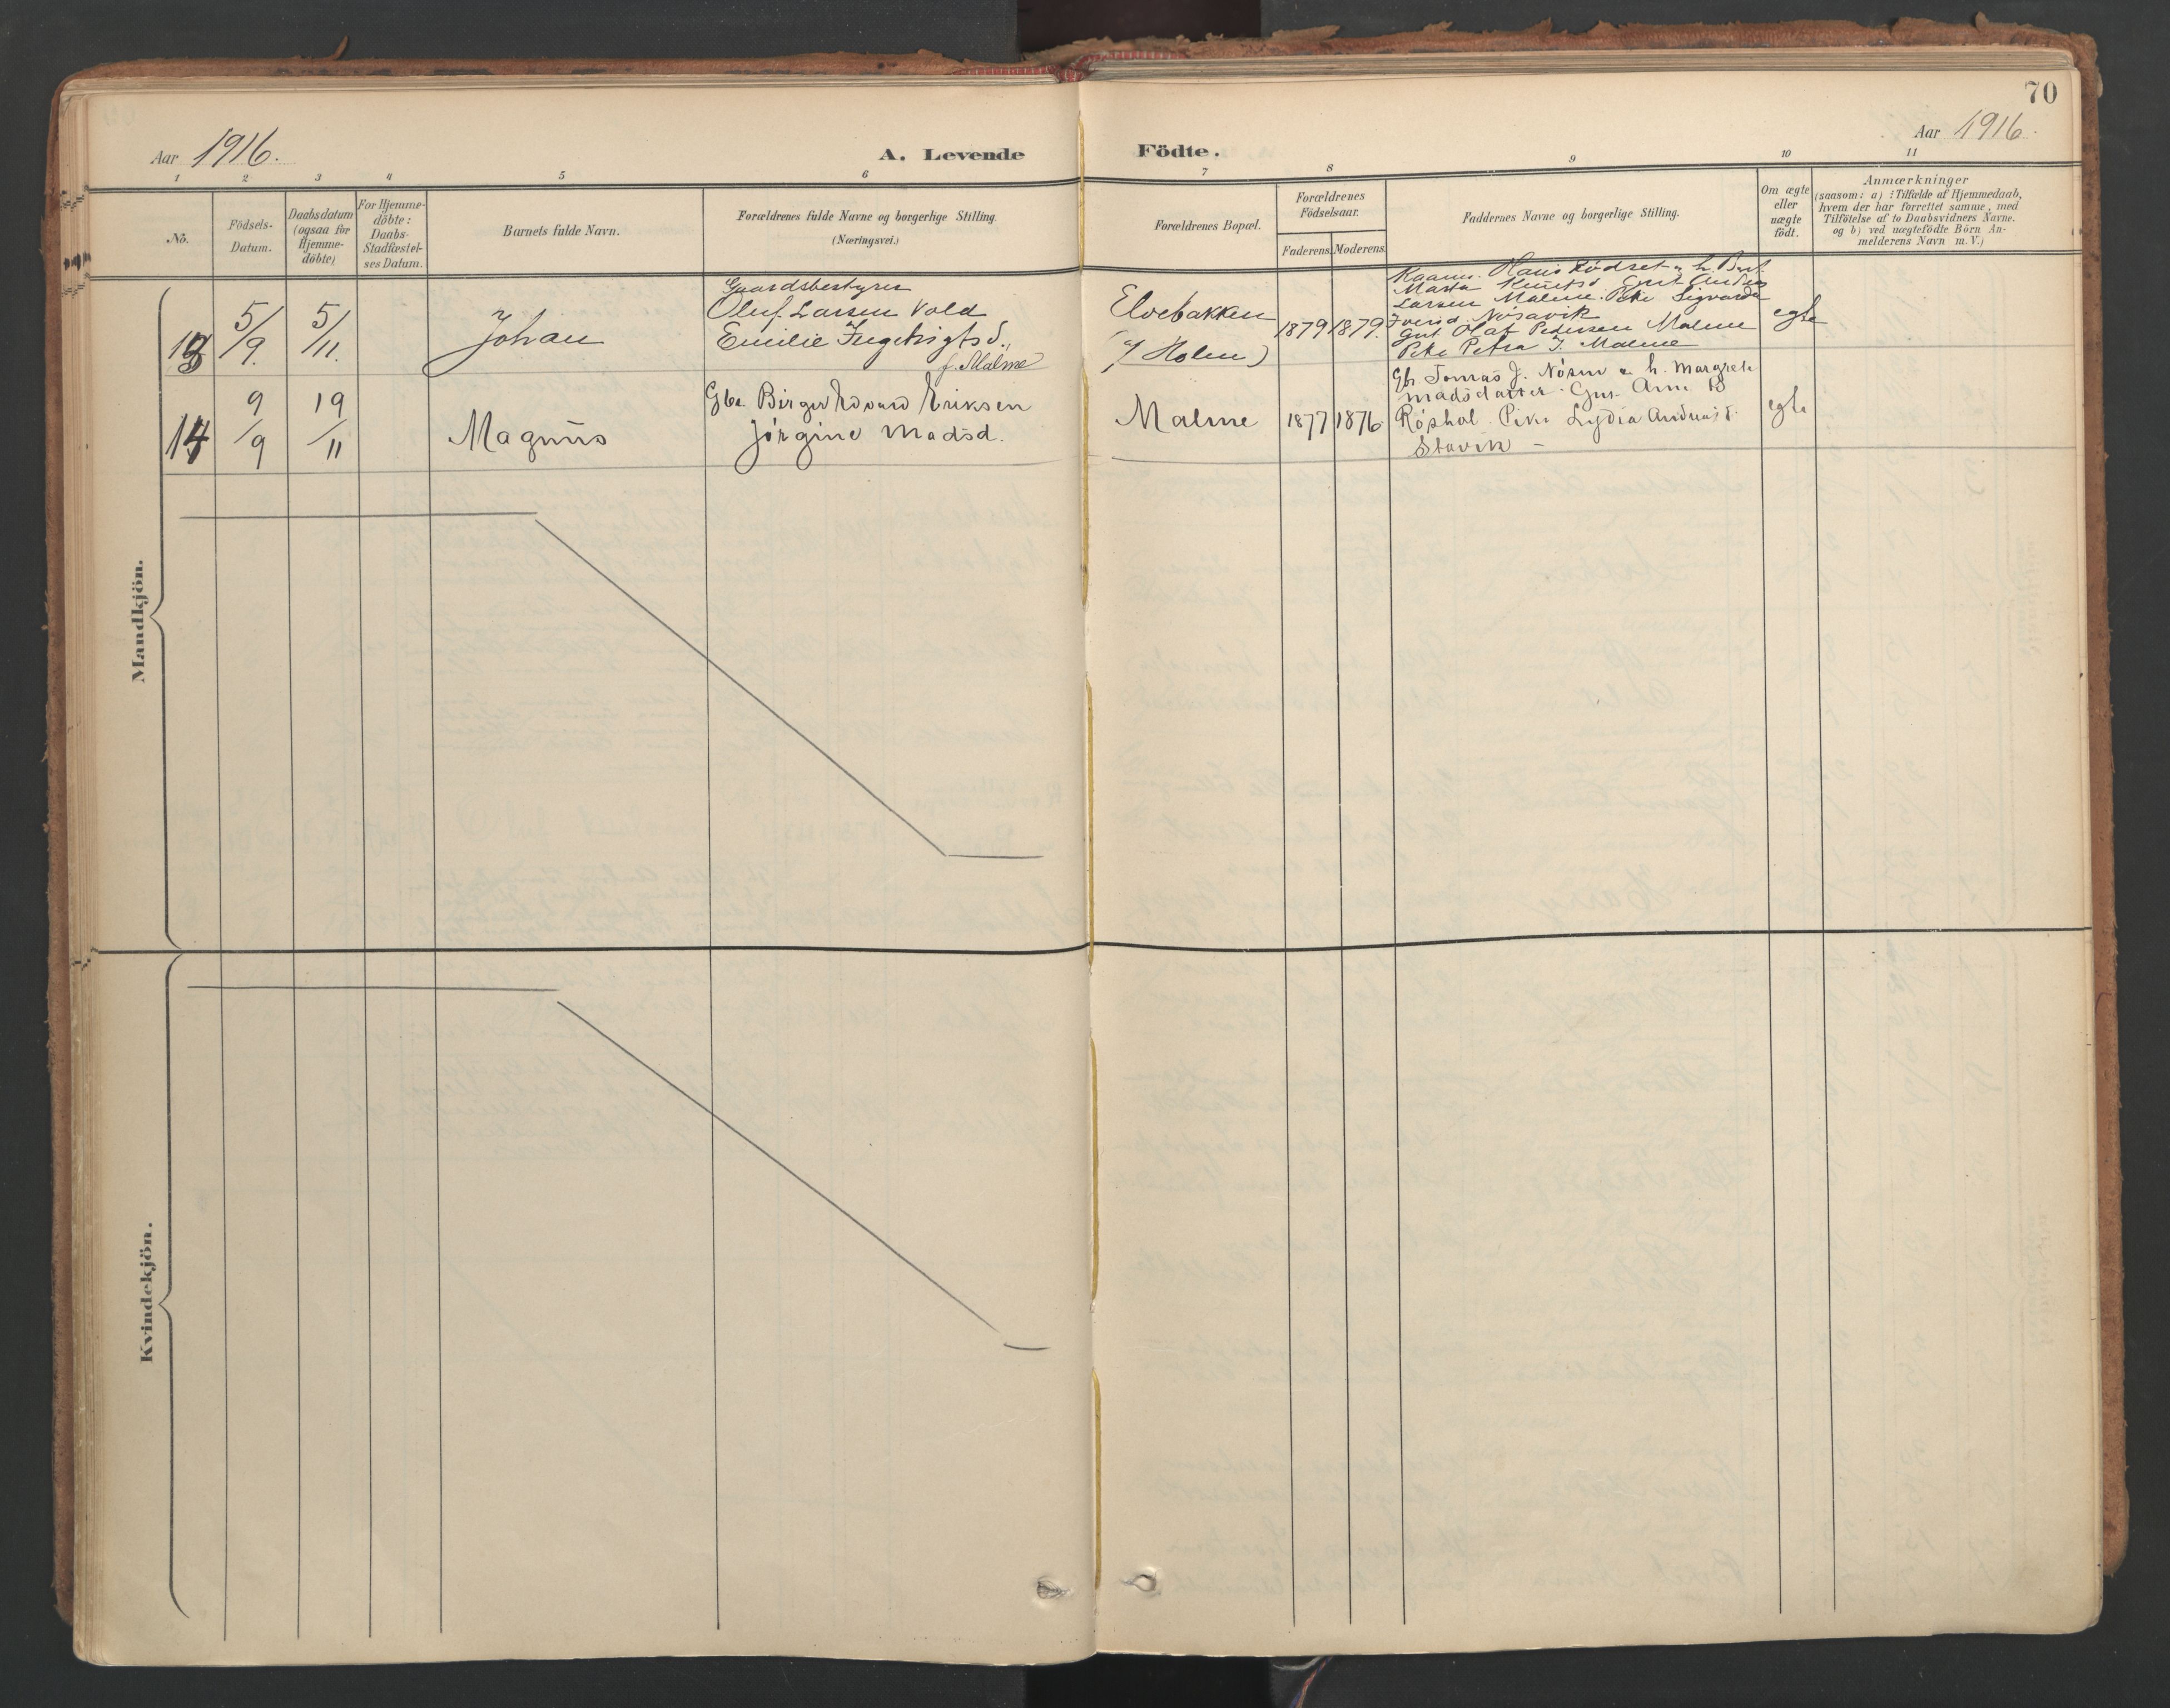 70
Aar 1916.
A. Levende Födte.
Aar 1916.
1 2 3 4 5 6 7 8 9 10 11
No.
Födsels-
Datum.
Daabsdatum
(ogsaa for
Hjemme-
döbte)
For Hjemme-
döbte:
Daabs-
Stadfæstel-
ses Datum.
Barnets fulde Navn.
Forældrenes fulde Navne og borgerlige Stilling.
(Næringsvei.)
Forældrenes Bopæl.
Forældrenes
Födselsaar.
Faderens. Moderens.
Faddernes Navne og borgerlige Stilling.
Om ægte
eller
uægte
født.
Anmærkninger
(saasom: a) i Tilfælde af Hjemmedaab,
hvem der har forrettet samme, med
Tilföielse af to Daabsvidners Navne.
og b) ved uægtefödte Börn An-
melderens Navn m. V.)
Mandkjön.
13
5/9.
5/11.
Johan
Gaardsbestyrer
Oluf Larsen Vold
Emilie Ingebrigtsd.,
f. Malme
Elvebakken
(Holm)
1879 1879.
Kaarm. Hans Rødset o. h.
Marta Knutsd. Gmt Anders
Larsen Malme. Pike Sigvarda
Iversd. Nøsavik
Gmt Olaf Pedersen Malme
Pike Petra J. Malme
egte
14
9/9
19/11
Magnus
Gbr. Birger Edvard Eriksen
Jørgine Madsd.
Malme
1877 1876
Gbr Tomas J. Nøsen o. h. Margrete
Madsdatter. Gut Arne B
Røshol. Pike Lydia Andreasd.
Stavik –
egte
Kvindekjön.